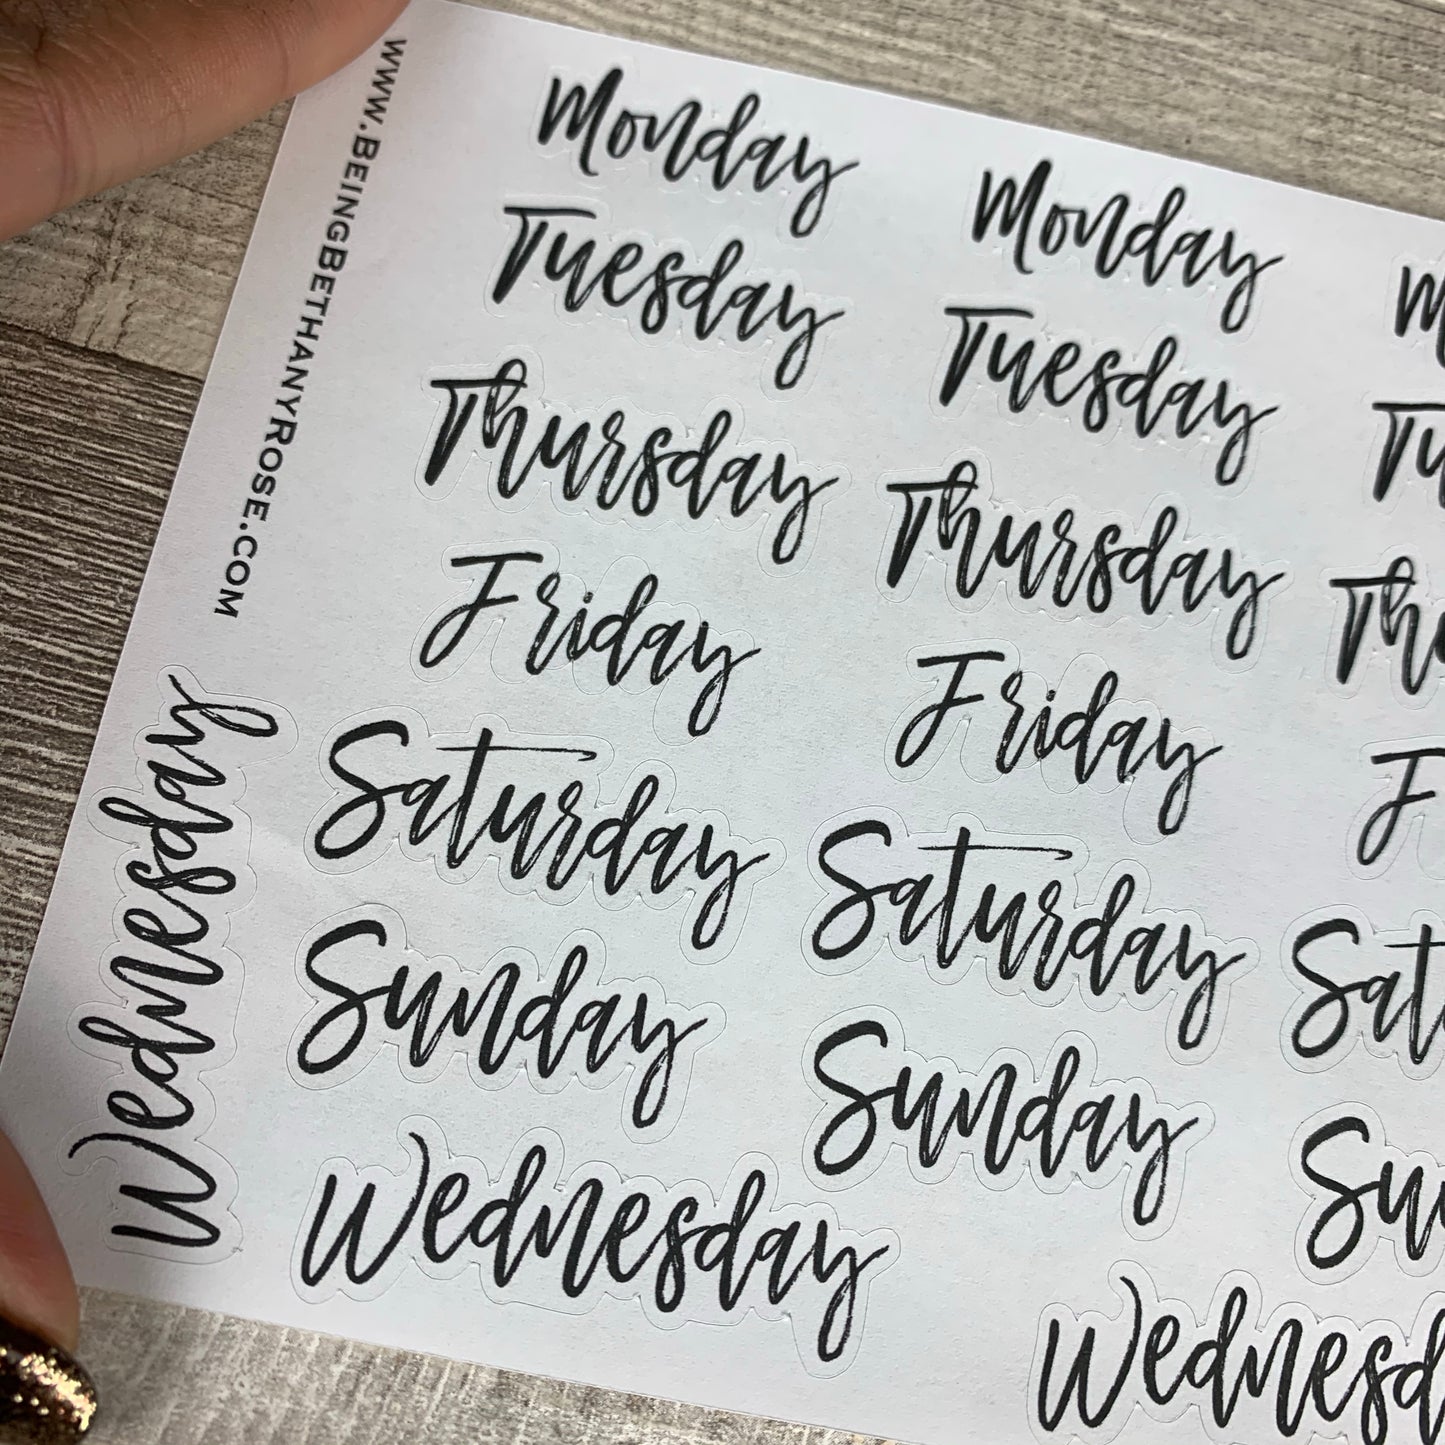 WWW.BEINGBETHANYROSE.COM
Wednesday
Monday
Tuesday
Thursday
Friday
Saturday
Sunday
Wednesday
Monday
Tuesday
Thursday
Friday
Saturday
Sunday
Wednesd
M
Tu
Thu
F
Sat
Su